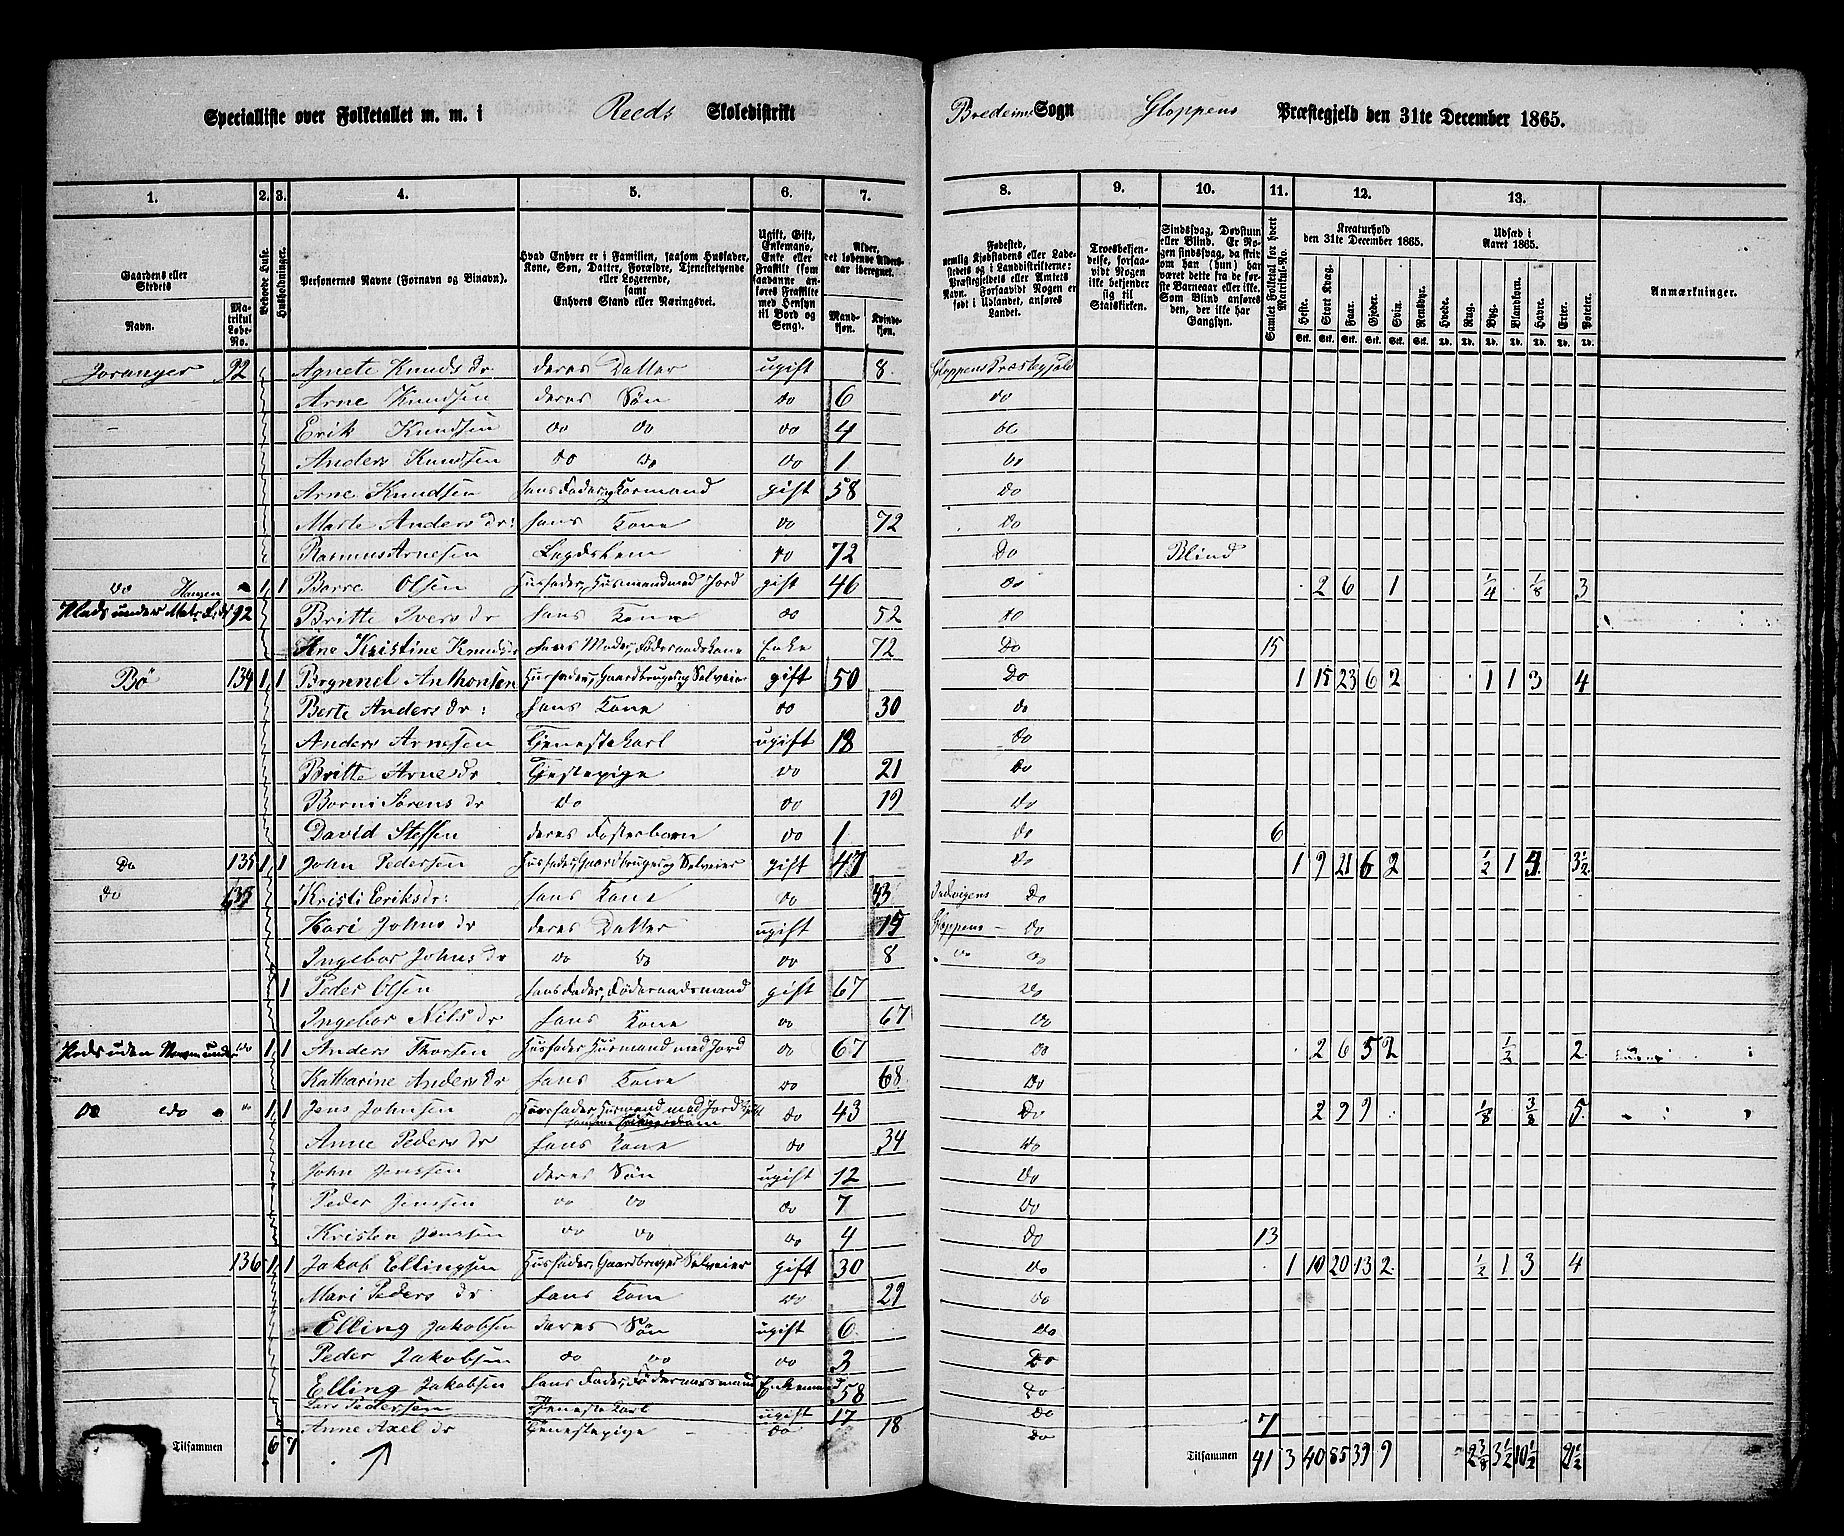 Specialliste over Folketallet m. m. i Reeds Skoledistrikt Bredeims Sogn Gloppens Præstegjeld den 31te December 1865.
1. 2. 3. 4. 5. 6. 7. 8. 9. 10. 11. 12. 13.
Gaardens eller Stedets
Navn.
Matrikul Løbe-No.
Beboede Huse.
Husholdninger.
Personernes Navne (Fornavn og Binavn).
Hvad Enhver er i Familien, saasom Husfader, Kone, Søn, Datter, Forældre, Tjenestetyende eller Logerende, samt Enhvers Stand eller Næringsvei.
Ugift, Gift, Enkemand, Enke eller Fraskilt (som saadanne anføres Fraskilte med Hensyn til Bord og Seng).
Alder, det løbende Alders-aar iberegnet.
Mandkjøn. Kvindekjøn.
Fødested, nemlig Kjøbstadens eller Ladestedets og i Landdistrikterne: Præstegjeldets eller Amtets Navn. Forsaavidt Nogen er født i Udlandet, anføres Landet.
Troesbekjendelse, forsaavidt Nogen ikke bekjender sig til Statskirken.
Sindssvag, Døvstum eller Blind. Er Nogen sindssvag, da skriv om han (hun) har været dette fra de første Barneaar eller ikke. Som Blind anføres den, der ikke har Gangsyn.
Samlet Folketal for hvert Matrikul-No.
Kreaturhold den 31te December 1865.
Heste. Stort Kvæg. Faar. Gjeder. Svin. Rensdyr.
Udsæd i Aaret 1865.
Hvede. Rug. Byg. Blandkorn. Havre. Erter. Poteter.
Anmærkninger.
Joranger 92 Agnete Knuds dr deres Datter ugift 8 Gloppens Præstegjeld
Arne Knudsen deres Søn do 6 do
Erik Knudsen do do do 4 do
Anders Knudsen do do do 1 do
Arne Knudsen gift 58 do
Marte Anders dr: hans Kone do 72 do
Rasmus Arnesen Lægdslem do 72 Do Blind
do Haugen 1 1 Børre Olsen Husfader, Husmand med Jord gift 46 do 2 6 1 1/4 1/8 3
Plads under 92 Britte Ivers dr hans Kone do 52 do
Ane Kristine Knudsdr hans Moder, Føderaadskone Enke 72 Do 15
Bø 134 1 1 Brynnel Anthonsen Husfader, Gaardbruger og Selveier gift 50 Do 1 15 23 6 2 1 1 3 4
Berte Anders dr: hans Kone do 30 do
Anders Arnesen Tjenestekarl ugift 18 do
Britte Arne dr do 21 Do
Borni Sørens dr do do 19 do
David Steffen deres Fosterbarn do 1 do 6
Do 135 1 1 John Pedersen Husfader, Gaardbruger og Selveier gift 47 do 1 9 21 6 2 1/2 1 3 1/2
do Kristi Eriksdr: hans Kone Do
Kari Johns dr deres Datter ugift 15 Gloppens do
Ingebor Johns dr do do do 8 do do
1 Peder Olsen hans Fader, Føderaadsmand gift 67 do
Ingebor Nils dr hans Kone do 67 do
Plads uden Navn under do 1 1 Anders Thorsen Husfader Husmand med Jord do 67 do 2 6 5 2 1/2 2
Katharine Anders dr hans Kone do 68 Do
do do do 1 1 Jens Johnsen Husfader, Husmand med Jord do 43 Do 2 9 9 1/8 3/8 5
Anne Peders dr hans Kone do 34 do
John Jenssen deres Søn ugift 12 do
Peder Jenssen do do do 7 do
Kristen Jenssen do do do 4 do 13
136 1 1 Jakob Ellingsen Husfader, Gaardbruger Selveier gift 30 do 1 10 20 13 2 1/2 1 3 4
Mari Peders dr hans Kone do 29 do
Elling Jakobsen deres Søn ugift 6 do
Peder Jakobsen do do do 3 Do
Elling Jakobsen hans Fader, Enkemand 58 do
Lars Pedersen Tjenestekarl ugift 17 do
Anne Axel dr Tjenestepige do 18 do 7
Tilsammen 6 7 Tilsammen 41 3 40 85 39 9 2 3/8 3 1/2 10 1/2 21 1/2